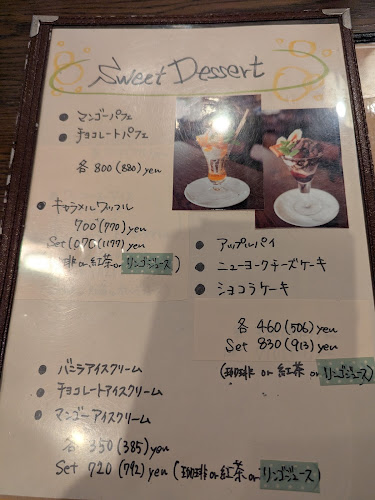 Sweet Dessert
● マンゴーパフェ
● チョコレートパフェ
各 800 (880) yen
● キャラメルワッフル
700 (770) yen
Set 1070 (1177) yen
(珈琲 or 紅茶 or リンゴジュース)
● アップルパイ
● ニューヨークチーズケーキ
● ショコラケーキ
各 460 (506) yen
Set 830 (913) yen
(珈琲 or 紅茶 or リンゴジュース)
● バニラアイスクリーム
● チョコレートアイスクリーム
● マンゴーアイスクリーム
各 350 (385) yen
Set 720 (792) yen (珈琲 or 紅茶 or リンゴジュース)